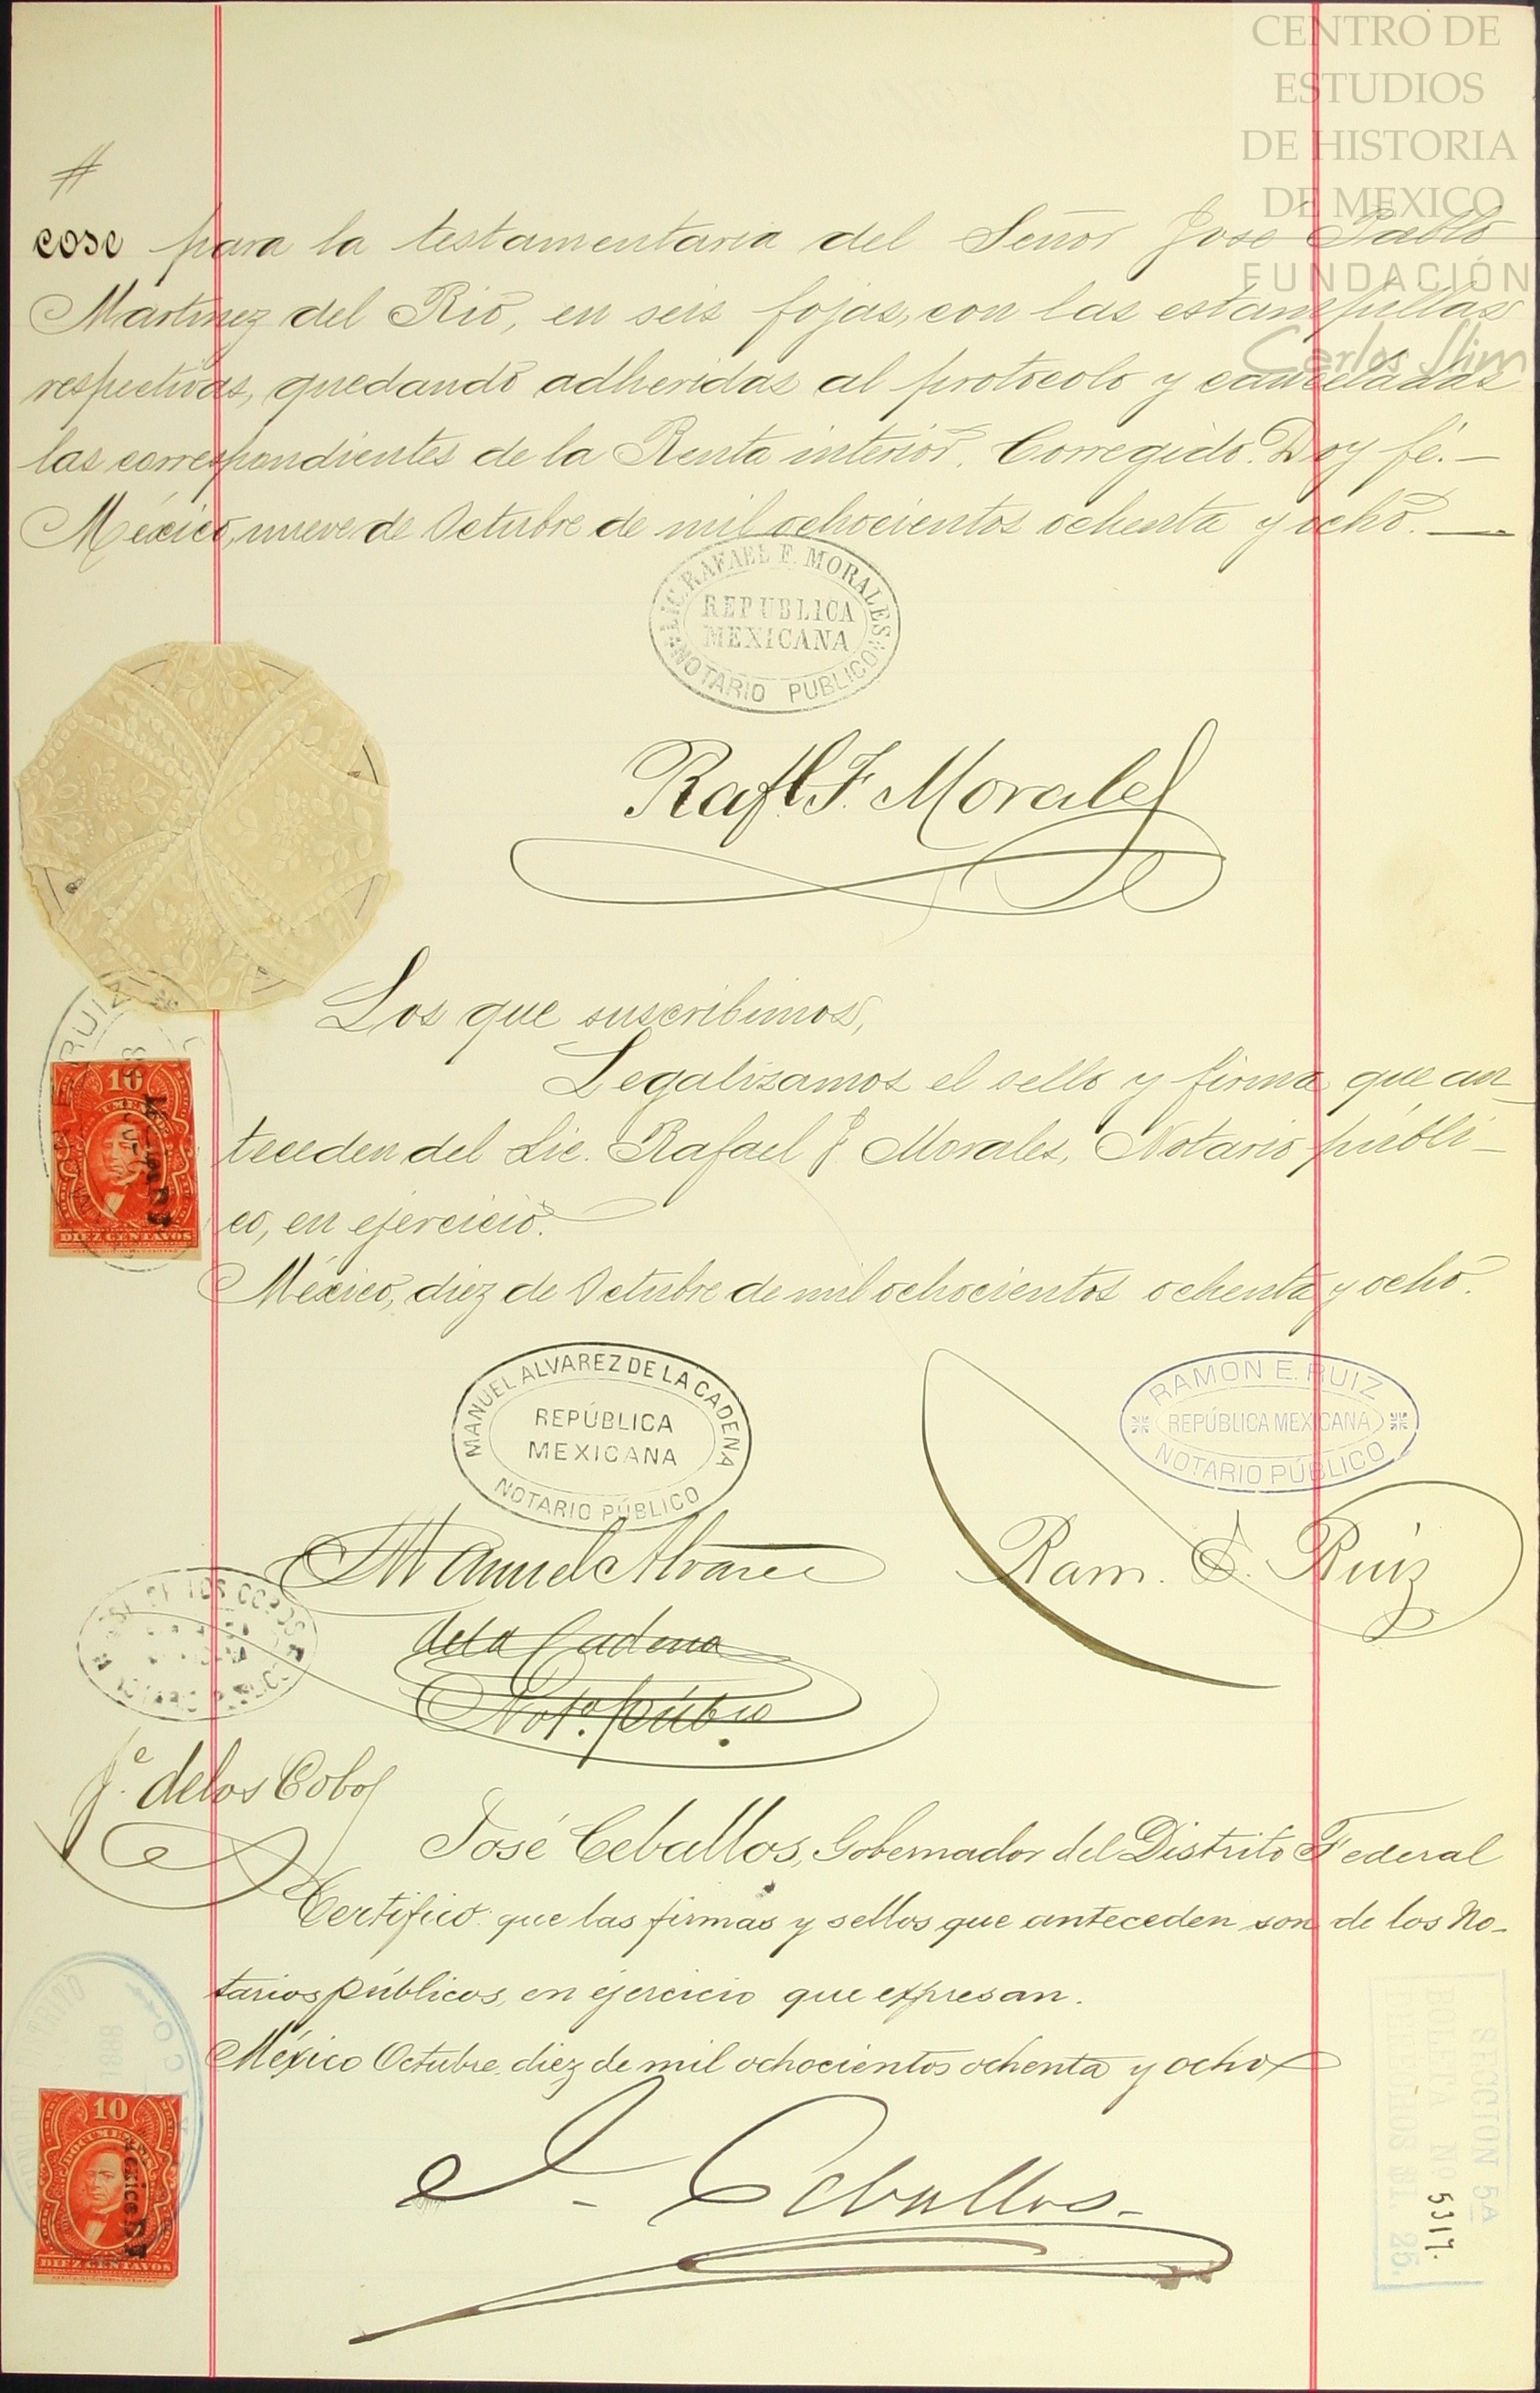 CENTRO DE
ESTUDIOS
DE HISTORIA
DE MEXICO
FUNDACIÓN
Carlos Slim
#
cose para la testamentaria del Señor José Pablo
Martinez del Rio, en seis fojas, con las estampillas
respectivas, quedando adheridas al protocolo y canceladas
las correspondientes de la Renta interior. Corregido. Doy fé.—
México, nueve de Octubre de mil ochocientos ochenta y ocho.—
LIC. RAFAEL F. MORALES
REPUBLICA
MEXICANA
NOTARIO PUBLICO
Rafl. F. Morales
Los que suscribimos,
Legalizamos el sello y firma que an_
teceden del Lic. Rafael F. Morales, Notario públi—
co, en ejercicio.
México, diez de Octubre de mil ochocientos ochenta y ocho.
RUIZ
10
DIEZ CENTAVOS
MANUEL ALVAREZ DE LA CADENA
REPÚBLICA
MEXICANA
NOTARIO PÚBLICO
RAMON E. RUIZ
REPÚBLICA MEXICANA
NOTARIO PÚBLICO
Manuel Alvarez
de la Cadena
Noto. púbco
Ram. E. Ruiz
Je. de los Cobos
José Ceballos, Gobernador del Distrito Federal
Certifico: que las firmas y sellos que anteceden son de los No-
tarios públicos, en ejercicio que expresan.
México Octubre diez de mil ochocientos ochenta y ocho
10
DOCUMENTOS
México
DIEZ CENTAVOS
J. Ceballos.
SECCION 5A
Nº 5317.